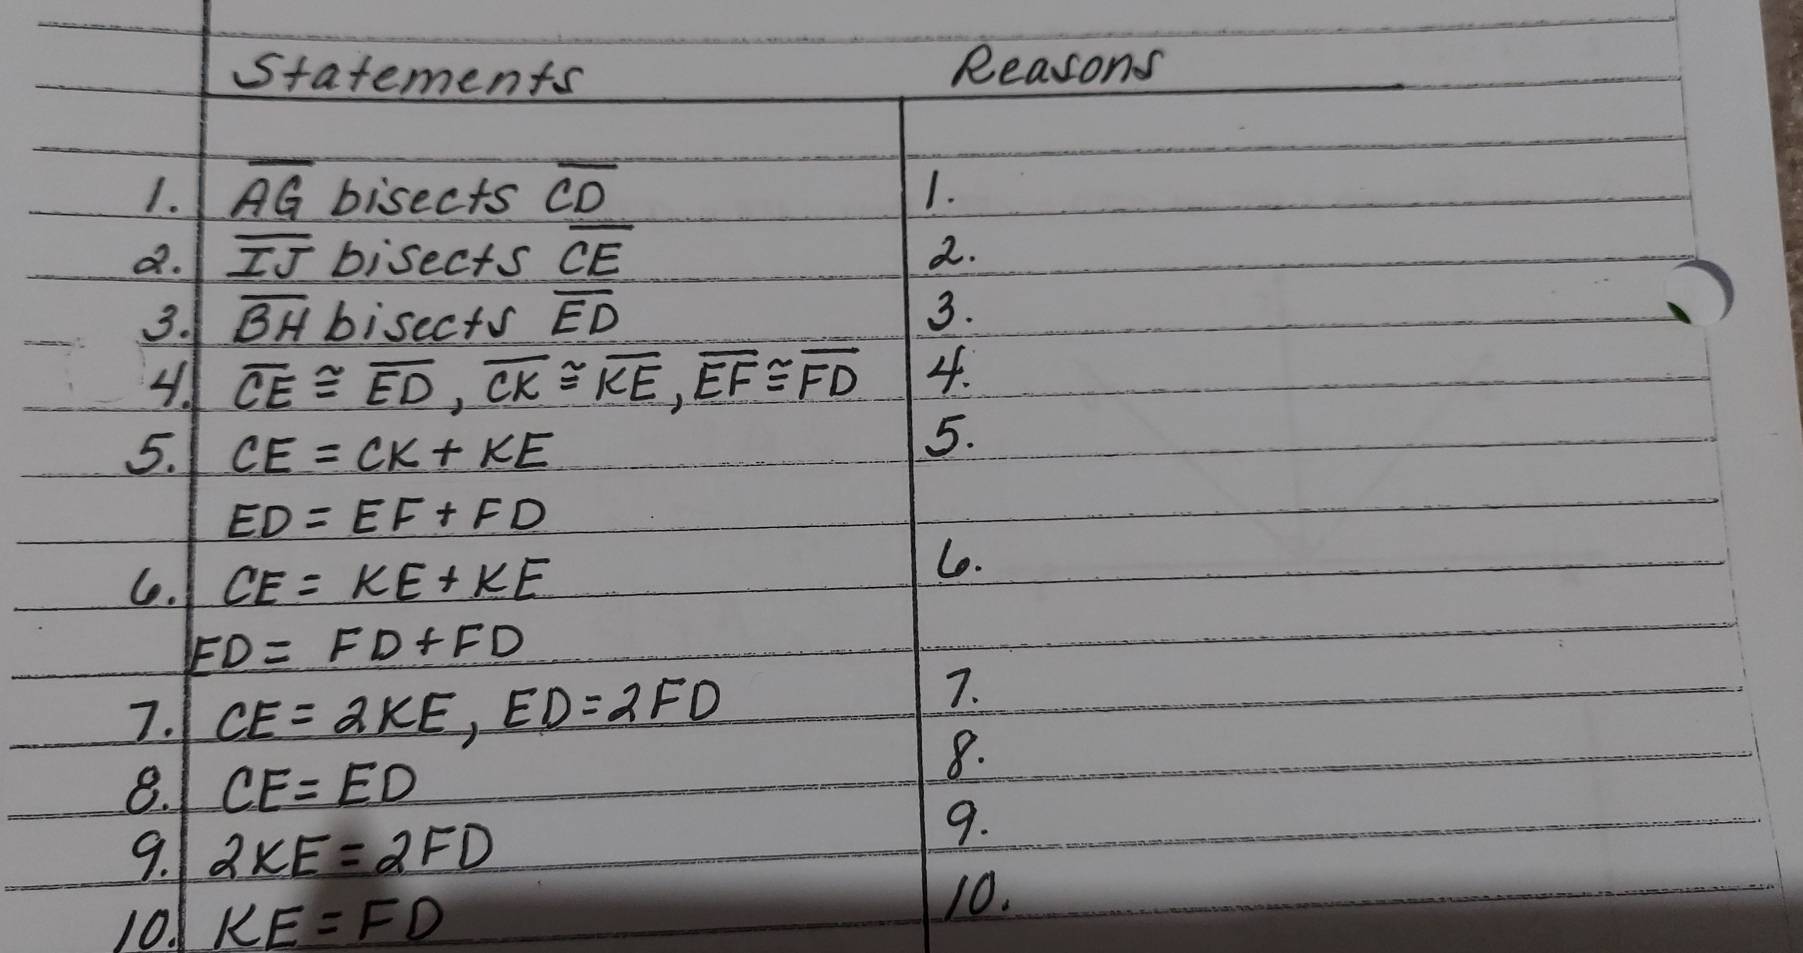 Statements Reasons
1. AG bisects CD 1.
2. IJ bisects CE 2.
3. BH bisects ED 3.
4. CE ≅ ED, CK ≅ KE, EF ≅ FD 4.
5. CE = CK + KE 5.
ED = EF + FD
6. CE = KE + KE 6.
ED = FD + FD
7. CE = 2KE, ED = 2FD 7.
8. CE = ED 8.
9. 2KE = 2FD 9.
10. KE = FD 10.